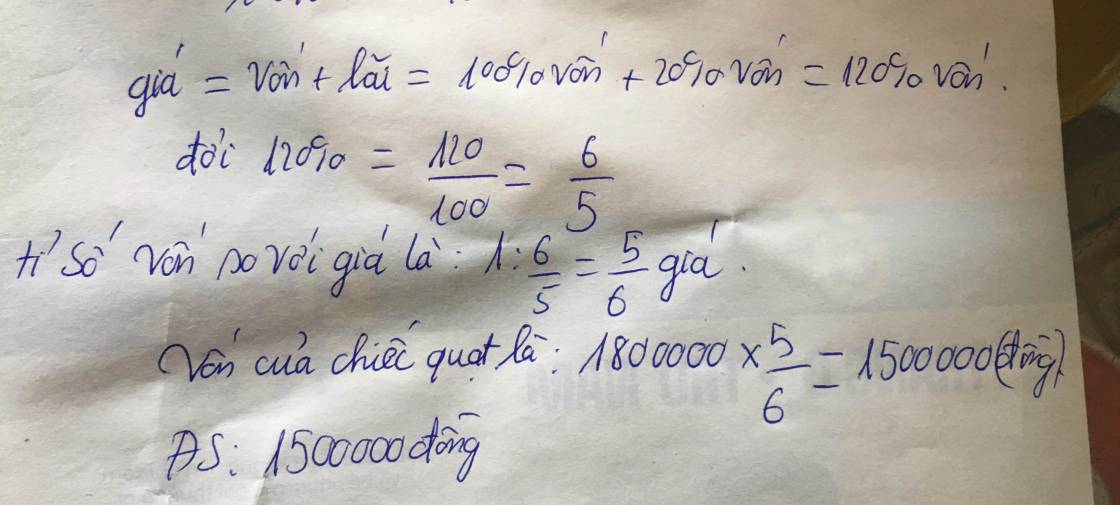 giá = vốn + lãi = 100% vốn + 20% vốn = 120% vốn.
đổi 120% = 120/100 = 6/5
tỉ số vốn so với giá là: 1: 6/5 = 5/6 giá.
Vốn của chiếc quạt là: 1800000 x 5/6 = 1500000(đồng)
ĐS: 1500000 đồng